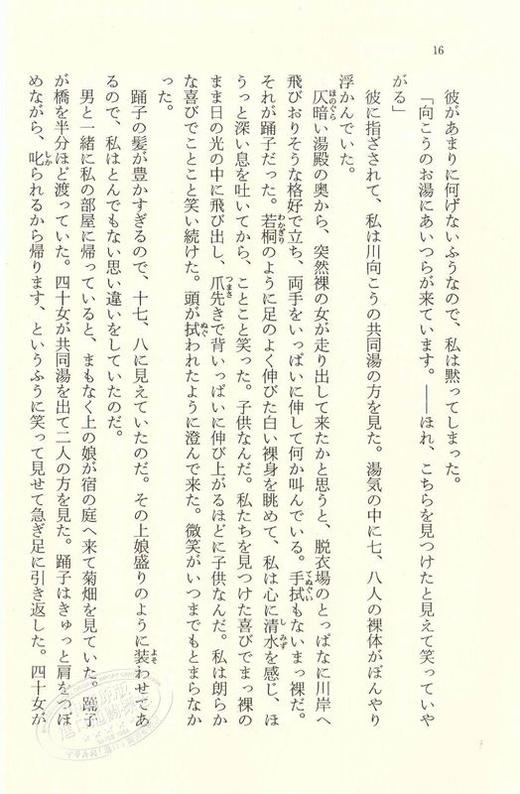 16
彼があまりに何げないふうなので、私は黙ってしまった。
「向こうのお湯にあいつらが来ています。――ほれ、こちらを見つけたと見えて笑っていや
がる」
彼に指ざされて、私は川向こうの共同湯の方を見た。湯気の中に七、八人の裸体がぼんやり
浮かんでいた。
仄暗い湯殿の奥から、突然裸の女が走り出して来たかと思うと、脱衣場のとっぱなに川岸へ
飛びおりそうな格好で立ち、両手をいっぱいに伸して何か叫んでいる。手拭もないまっ裸だ。
それが踊子だった。若桐のように足のよく伸びた白い裸身を眺めて、私は心に清水を感じ、ほ
うっと深い息を吐いてから、ことこと笑った。子供なんだ。私たちを見つけた喜びでまっ裸の
まま日の光の中に飛び出し、爪先きで背いっぱいに伸び上がるほどに子供なんだ。私は朗らか
な喜びでことこと笑い続けた。頭が拭われたように澄んで来た。微笑がいつまでもとまらなか
った。
踊子の髪が豊かすぎるので、十七、八に見えていたのだ。その上娘盛りのように装わせてあ
るので、私はとんでもない思い違いをしていたのだ。
男と一緒に私の部屋に帰っていると、まもなく上の娘が宿の庭へ来て菊畑を見ていた。踊子
が橋を半分ほど渡っていた。四十女が共同湯を出て二人の方を見た。踊子はきゅっと肩をつぼ
めながら、叱られるから帰ります、というふうに笑って見せて急ぎ足に引き返した。四十女が